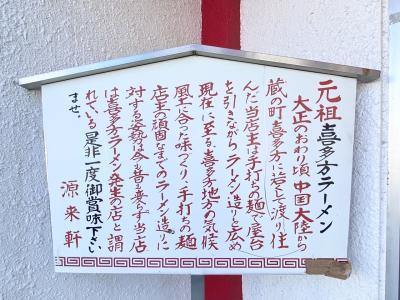 元祖 喜多方ラーメン
大正のおわり頃中国大陸から
蔵の町喜多方に若くして渡り住
んだ当店主は手打ちの麺で屋台
を引きながらラーメン造りを広め
現在に至る喜多方地方の気候
風土に合った味つくりと手打ちの麺
店主の頑固なまでのラーメン造りに
対する姿勢は今も昔も変らず当店
は喜多方ラーメン発生の店と謂
われている是非一度御賞味下さい
ませ。
源来軒